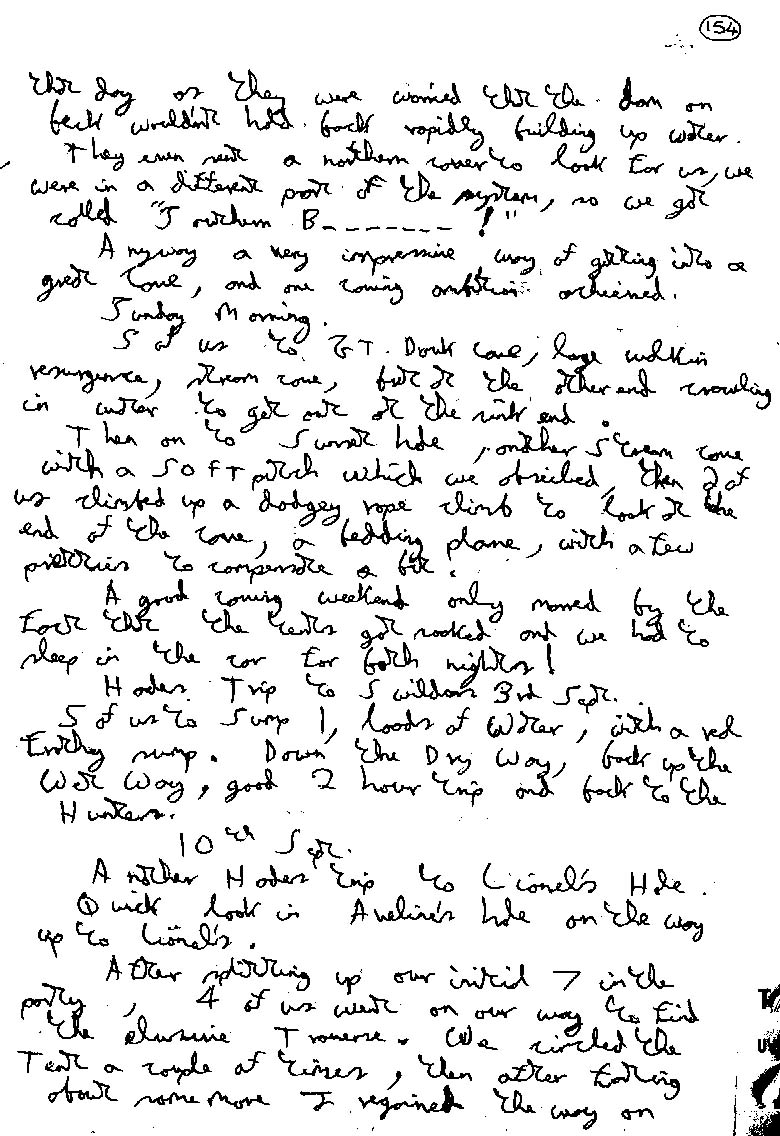 154
that day as they were worried that the dam on
beck wouldn't hold back rapidly building up water.
They even sent a northern caver to look for us, we
were in a different part of the system, so we got
called "Southern B_______!"
Anyway a very impressive way of getting into a
great cave, and one caving ambition achieved.
Sunday Morning.
5 of us to GT. Douk cave, large walk in
resurgence, stream cave, but at the other end crawling
in water to get out at the sink end.
Then on to Sunset hole, another Stream cave
with a 50FT pitch which we abseiled, then 2 of
us climbed up a dodgey rope climb to look at the
end of the cave, a bedding plane, with a few
pretties to compensate a bit.
A good caving weekend only marred by the
Fact that the tents got soaked and we had to
sleep in the car for both nights!
Hades Trip to Swildons 3rd Sept.
5 of us to Sump 1, loads of Water, with a red
Frothy sump. Down the Dry Way, back up the
Wet Way, good 2 hour trip and back to the
Hunters.
10th Sept.
Another Hades trip to Lionel's Hole.
Quick look in Aveline's hole on the way
up to Lionel's.
After splitting up our initial 7 in the
party, 4 of us went on our way to find
the elusive Traverse. We circled the
Tent a couple of times, then after
about some more I regained the way on